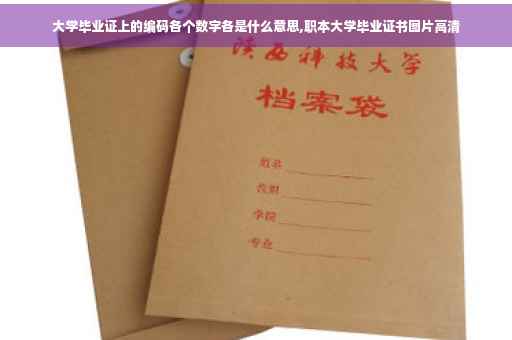 大学毕业证上的编码各个数字各是什么意思,职本大学毕业证书图片高清
陕西科技大学
档案袋
姓名
学院
专业